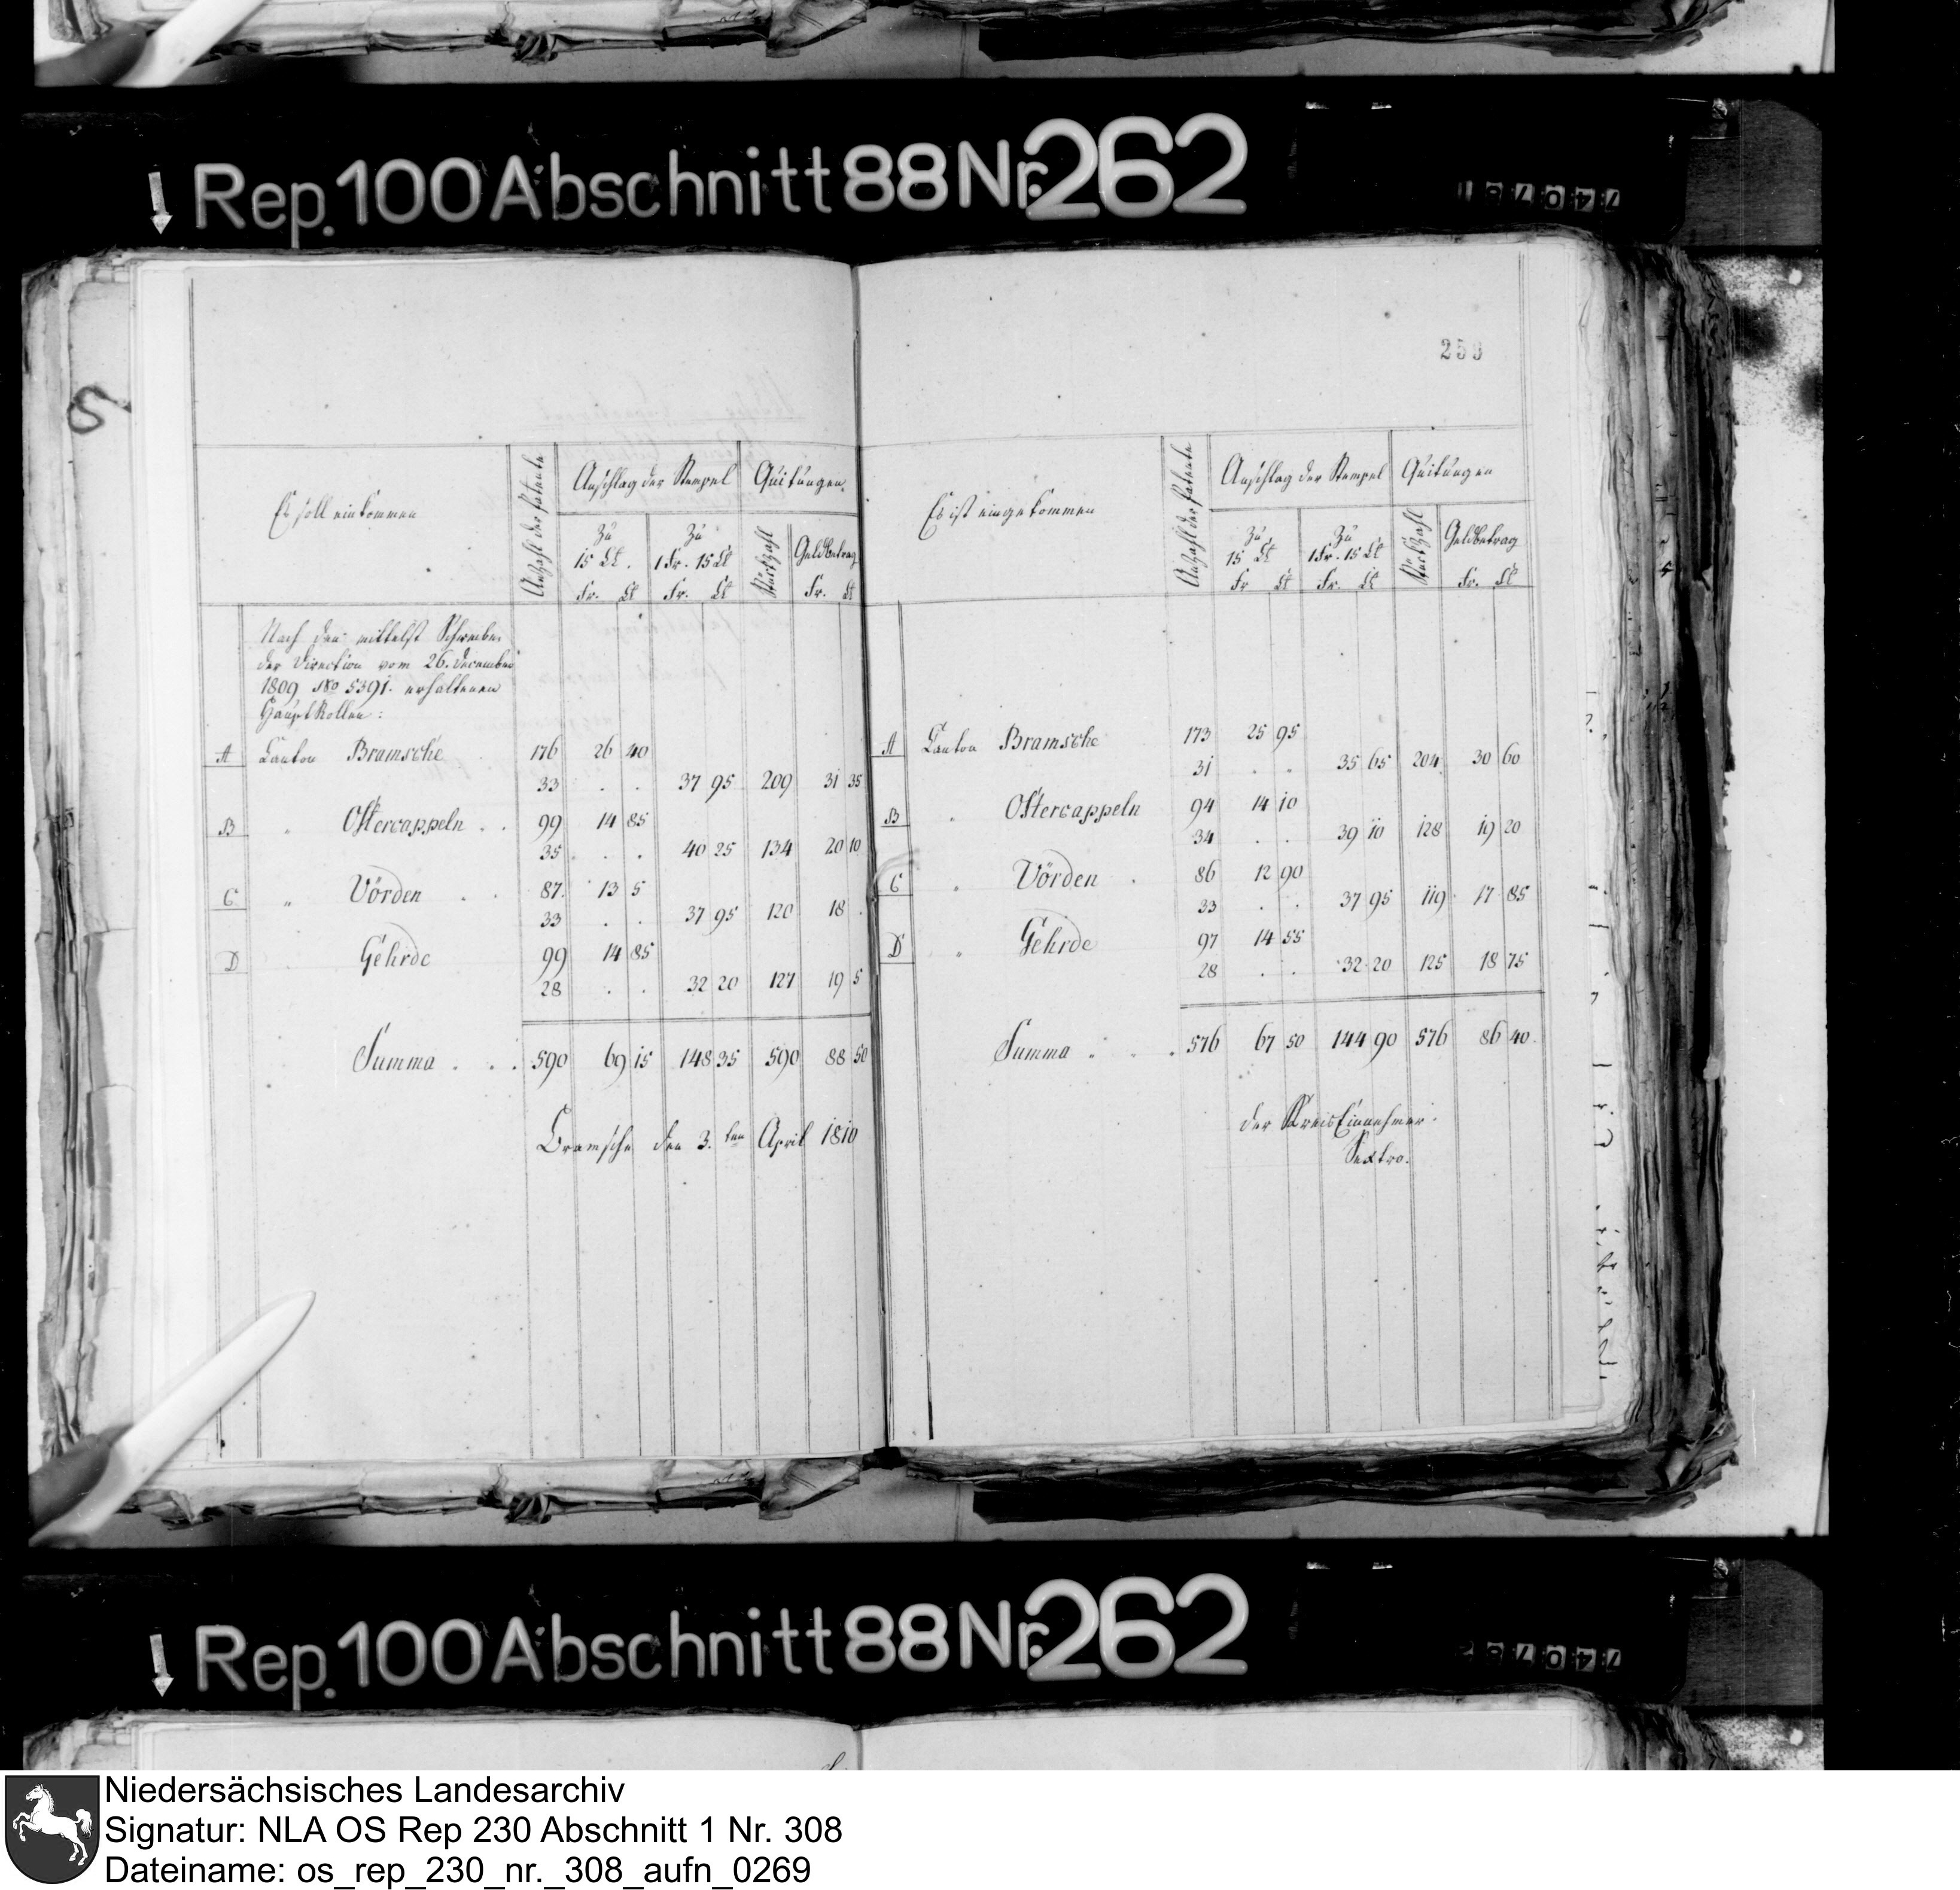 Rep. 100 Abschnitt 88 Nr. 262
253
Es soll einkommen
Anzahl der Patente
Anschlag der Stempel
Quitungen.
Zu
15 Ct.
Zu
1 Fr. 15 Ct
Stückzahl
Geldbetrag
Fr. Ct Fr. Ct Fr. Ct
Nach den mittelst Schreiben
der Direction vom 26. December
1809 No 5391. erhaltenen
HauptRollen:
A Canton Bramsche 176 26 40
33 . . 37 95 209 31 35
B " Ostercappeln . . 99 14 85
35 . . 40 25 134 20 10
C " Vörden . . 87. 13 5
33 . . 37 95 120 18 .
D Gehrde 99 14 85
28 . . 32 20 127 19 5
Summa . . . 590 69 15 148 35 590 88 50
Bramsche den 3.ten April 1810
Es ist eingekommen
Anzahl der Patente
Anschlag der Stempel
Quitungen
Zu
15 Ct
Zu
1 Fr. 15 Ct
Stückzahl
Geldbetrag
Fr Ct Fr. Ct Fr. Ct
A Canton Bramsche 173 25 95
31 . . 35 65 204 30 60
B " Ostercappeln 94 14 10
34 . . 39 10 128 19 20
C " Vörden . 86 12 90
33 . . 37 95 119 17 85
D " Gehrde 97 14 55
28 . . 32 20 125 18 75
Summa . . . 576 67 50 144 90 576 86 40.
der KreisEinnehmer.
Sextro.
Rep. 100 Abschnitt 88 Nr. 262
Niedersächsisches Landesarchiv
Signatur: NLA OS Rep 230 Abschnitt 1 Nr. 308
Dateiname: os_rep_230_nr._308_aufn_0269